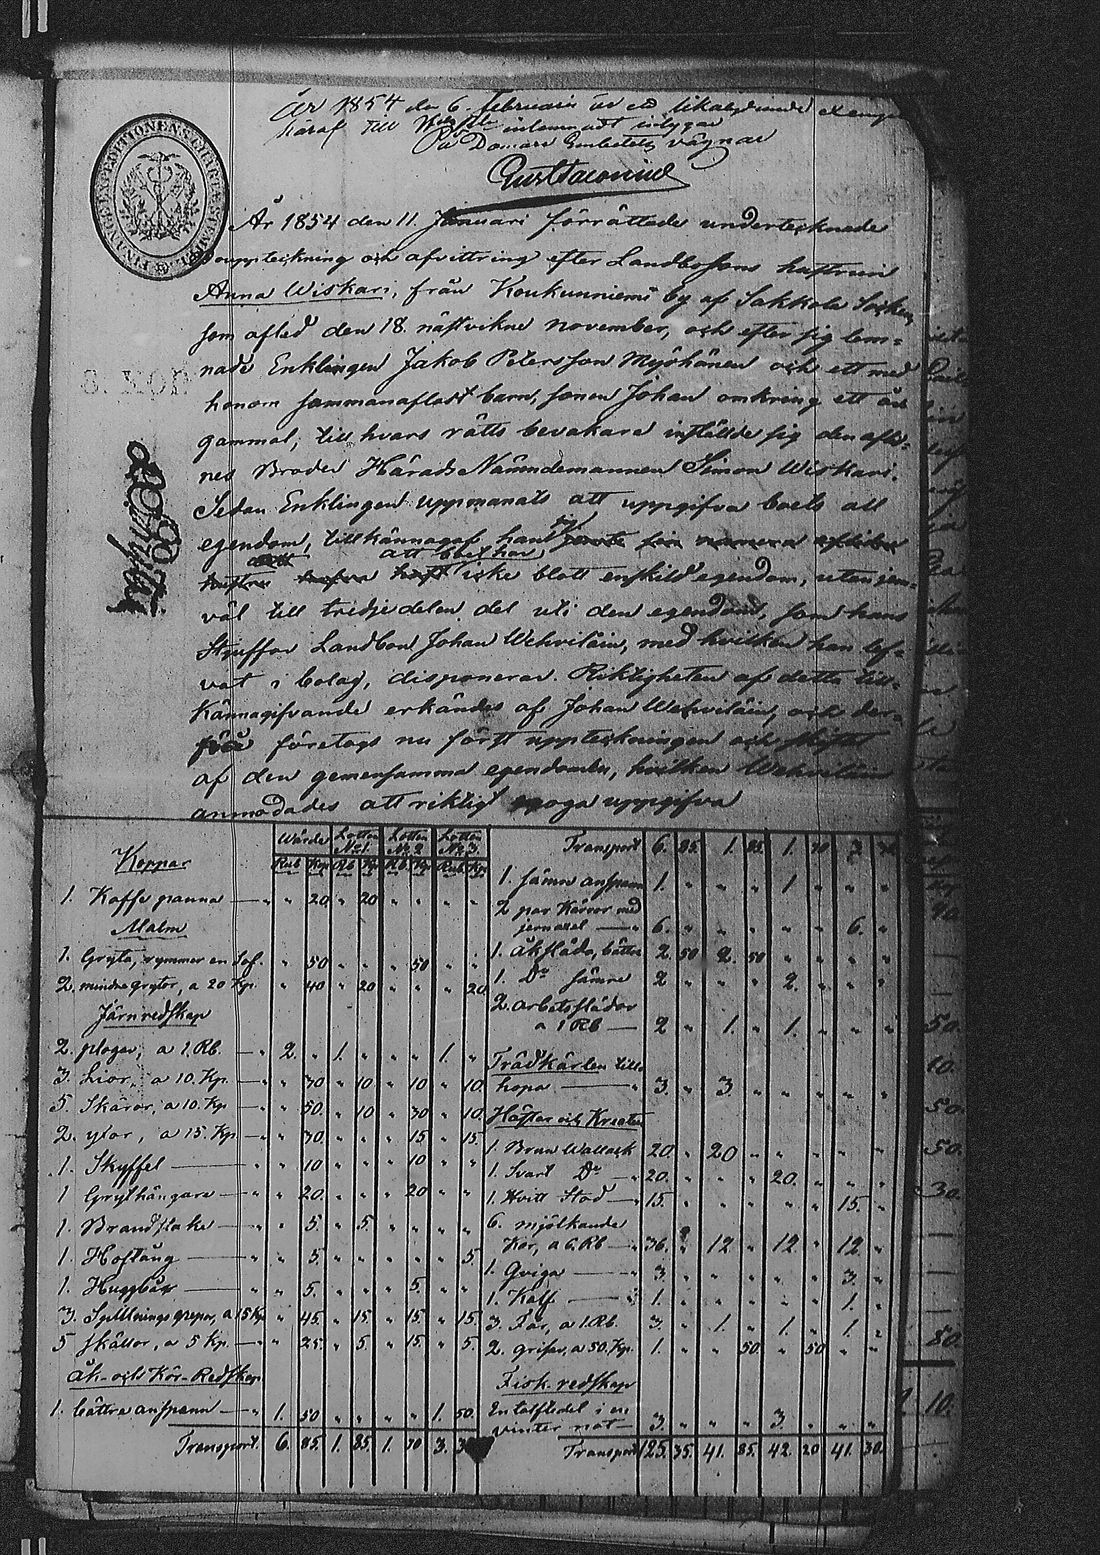 År 1854 den 6. Februarii är ett likalydande exemplar
häraf till inlemnadt intygar
På Domare Embetets vägnar
FINANCE EXPEDITIONENS CHARTÆ STEMPEL
År 1854 den 11. Januari förrättade undertecknade
Bouppteckning och afvittring efter Landbofsons hustrun
Anna Wiskari, från Koukunniemi by af Sakkola Socken,
som afled den 18. näftvikne November, och efter sig lem=
nade Enklingen Jakob Petersson Myöhänen och ett med
honom sammanafladt barn, sonen Johan omkring ett år
gammal, till hvars rätts bevakare instälde sig den afle=
nes Broder Härads Nämndemannen Simon Wiskari.
Sedan Enklingen uppmanats att uppgifva boets all
egendom, tillkännagaf han
att boet har
icke blott enskild egendom, utan jem=
väl till tridjedelen del uti den egendom, som hans
Stuffar Landbon Johan Wehviläin, med hvilken han lef=
vat i bolag, disponerar. Riktigheten af detta till=
kännagifvande erkändes af Johan Wehviläin, och der=
före företogs nu först uppteckningen och skiftet
af den gemensamma egendomen, hvilken Wehviläin
anmodades att riktigt uppgifva
Wärde Lotten No 1. Lotten No 2 Lotten No 3.
Koppar Rub Kp Rb Kp Rb Kp Rub Kp
1. Kaffe panna — " " 20. " 20 " " " "
Malm
1. Gryta, rymmer en " 50 " " " 50 " "
2. mindre grytor, a 20 Kp. " 40 " 20 " " " 20
Järnredskap
2. plogar, a 1. Rb. — 2. " 1. " " " 1. "
3. Liar, a 10. Kp — " 30 " 10 " 10 " 10.
5. Skäror, a 10. Kp — " 50. " 10 " 30 " 10.
2. yxor, a 15. Kp — " 30. " " " 15 " 15
1. Skyffel — " 10 " " " 10 " "
1 Grythängare — " 20. " " " 20 " "
1. Brandstake — " 5. " 5. " " " "
1. Hoftång — " 5. " " " " " 5
1. Huggbår " 5. " " " 5. " "
3. Spillnings grepar, a 15 Kp " 45. " 15. " 15 " 15
5 skällor, a 5 Kp. — " 25. " 5. " 15. " 5.
Åk- och Kör-Redskap
1. bättre anspann — 1. 50 " " " " 1. 50.
Transport. 6. 85. 1. 85. 1. 70 3. 30
Transport 6. 85. 1. 85. 1. 70 3. 30
1. sämre anspann 1. " " " 1 " " "
2 par Kärror med
jernaxel — 6. " " " " " 6. "
1. åksläda, bättre 2. 50 2. 50 " " " "
1. Do sämre 2 " " " 2. " " "
2. arbetsslädar
a 1 Rb — 2 " 1. " 1. " " "
Trädkärlen till=
hopa — 3. " 3. " " " " "
Hästar och Kreatur
1. Brun Wallack 20. " 20 " " " " "
1. Svart Do — 20. " " " 20. " " "
1. Hvitt Stod — 15. " " " " " 15. "
6. mjölkande
Kor, a 6. Rb — 36. " 12 " 12 " 12 "
1. Qviga — 3. " " " " " 3. "
1. Kalf — 1. " " " " " 1. "
3. Får, a 1. Rb. 3. " 1. " 1. " 1. "
2. grisar, a 50. Kp. 1. " " 50. " 50 " "
Fisk-redskap
En talfsdel i en
vinter not — 3. " " " 3. " " "
Transport 125. 35. 41. 85. 42. 20 41. 30.